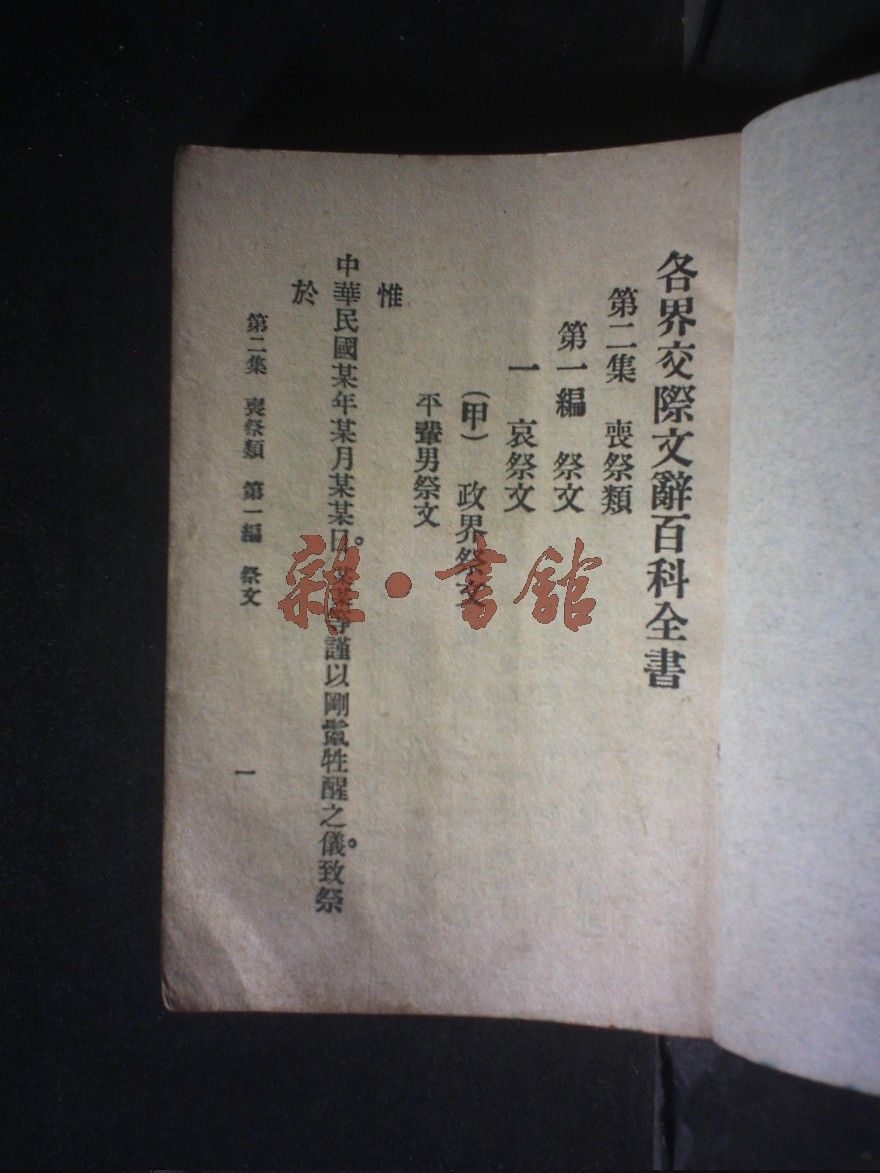 各界交際文辭百科全書
第二集 喪祭類
第一編 祭文
一 哀祭文
(甲) 政界祭文
平輩男祭文
惟
中華民國某年某月某某日。某某等謹以剛鬣牲醒之儀。致祭
於
第二集 喪祭類 第一編 祭文
一
雜·書館